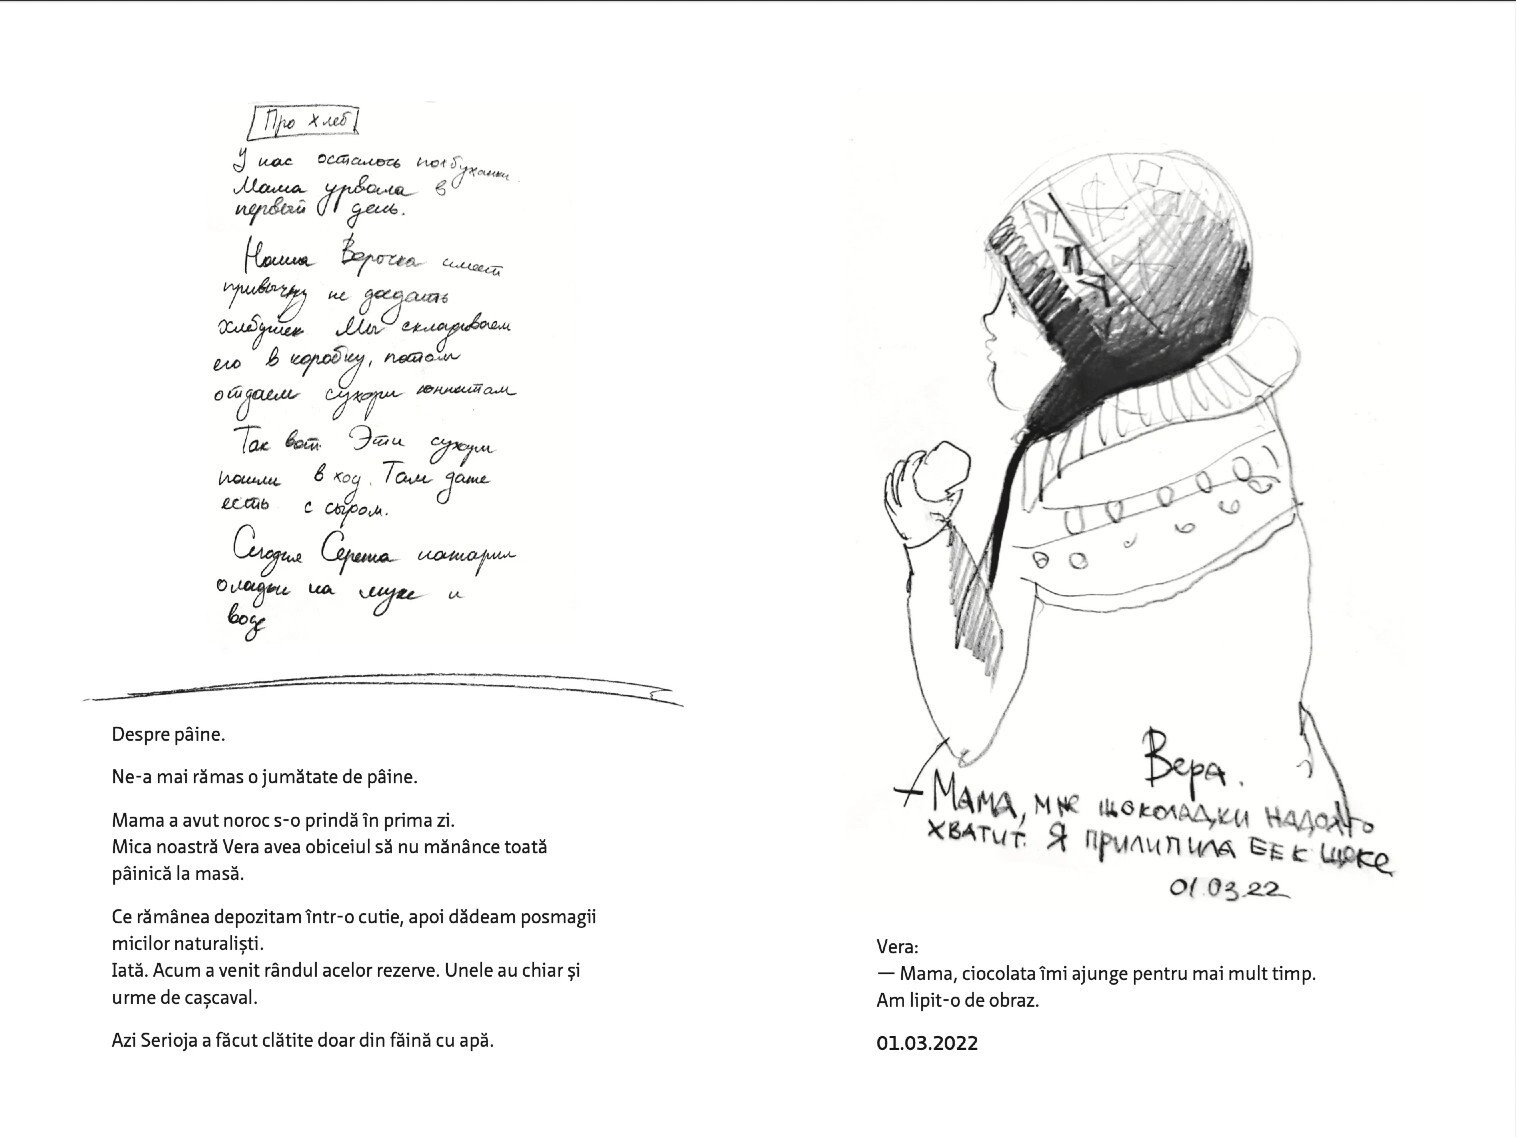 Про хлеб
У нас осталось полбуханки.
Мама урвала в
первый день.
Наша Верочка имеет
привычку не доедать
хлебушек Мы складываем
его в коробку, потом
отдаем сухари юннатам
Так вот. Эти сухари
пошли в ход. Там даже
есть с сыром.
Сегодня Сережа нажарил
оладьи на муке и
воде
Despre pâine.
Ne-a mai rămas o jumătate de pâine.
Mama a avut noroc s-o prindă în prima zi.
Mica noastră Vera avea obiceiul să nu mănânce toată
pâinică la masă.
Ce rămânea depozitam într-o cutie, apoi dădeam posmagii
micilor naturaliști.
Iată. Acum a venit rândul acelor rezerve. Unele au chiar și
urme de cașcaval.
Azi Serioja a făcut clătite doar din făină cu apă.
Вера.
– Мама, мне шоколадки надолго
хватит. Я прилипила ее к щеке
01.03.22
Vera:
— Mama, ciocolata îmi ajunge pentru mai mult timp.
Am lipit-o de obraz.
01.03.2022